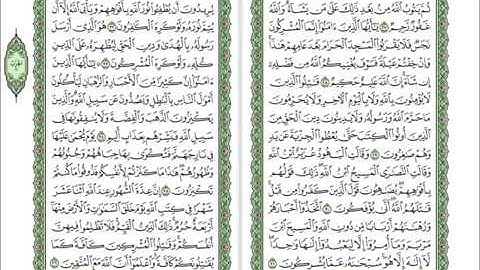 ثُمَّ يَتُوبُ ٱللَّهُ مِنۢ بَعْدِ ذَٰلِكَ عَلَىٰ مَن يَشَآءُ وَٱللَّهُ
غَفُورٌ رَّحِيمٌ ٢٧ يَٰٓأَيُّهَا ٱلَّذِينَ ءَامَنُوٓا۟ إِنَّمَا ٱلْمُشْرِكُونَ
نَجَسٌ فَلَا يَقْرَبُوا۟ ٱلْمَسْجِدَ ٱلْحَرَامَ بَعْدَ عَامِهِمْ هَٰذَا
وَإِنْ خِفْتُمْ عَيْلَةً فَسَوْفَ يُغْنِيكُمُ ٱللَّهُ مِن فَضْلِهِۦٓ
إِن شَآءَ إِنَّ ٱللَّهَ عَلِيمٌ حَكِيمٌ ٢٨ قَٰتِلُوا۟ ٱلَّذِينَ
لَا يُؤْمِنُونَ بِٱللَّهِ وَلَا بِٱلْيَوْمِ ٱلْءَاخِرِ وَلَا يُحَرِّمُونَ
مَا حَرَّمَ ٱللَّهُ وَرَسُولُهُۥ وَلَا يَدِينُونَ دِينَ ٱلْحَقِّ مِنَ
ٱلَّذِينَ أُوتُوا۟ ٱلْكِتَٰبَ حَتَّىٰ يُعْطُوا۟ ٱلْجِزْيَةَ عَن يَدٍ
وَهُمْ صَٰغِرُونَ ٢٩ وَقَالَتِ ٱلْيَهُودُ عُزَيْرٌ ٱبْنُ ٱللَّهِ
وَقَالَتِ ٱلنَّصَٰرَى ٱلْمَسِيحُ ٱبْنُ ٱللَّهِ ذَٰلِكَ قَوْلُهُم
بِأَفْوَٰهِهِمْ يُضَٰهِـُٔونَ قَوْلَ ٱلَّذِينَ كَفَرُوا۟ مِن قَبْلُ
قَٰتَلَهُمُ ٱللَّهُ أَنَّىٰ يُؤْفَكُونَ ٣٠ ٱتَّخَذُوٓا۟ أَحْبَارَهُمْ
وَرُهْبَٰنَهُمْ أَرْبَابًا مِّن دُونِ ٱللَّهِ وَٱلْمَسِيحَ ٱبْنَ
مَرْيَمَ وَمَآ أُمِرُوٓا۟ إِلَّا لِيَعْبُدُوٓا۟ إِلَٰهًا وَٰحِدًا
لَّآ إِلَٰهَ إِلَّا هُوَ سُبْحَٰنَهُۥ عَمَّا يُشْرِكُونَ ٣١
يُرِيدُونَ أَن يُطْفِـُٔوا۟ نُورَ ٱللَّهِ بِأَفْوَٰهِهِمْ وَيَأْبَى ٱللَّهُ إِلَّآ أَن
يُتِمَّ نُورَهُۥ وَلَوْ كَرِهَ ٱلْكَٰفِرُونَ ٣٢ هُوَ ٱلَّذِىٓ أَرْسَلَ
رَسُولَهُۥ بِٱلْهُدَىٰ وَدِينِ ٱلْحَقِّ لِيُظْهِرَهُۥ عَلَى ٱلدِّينِ
كُلِّهِۦ وَلَوْ كَرِهَ ٱلْمُشْرِكُونَ ٣٣ يَٰٓأَيُّهَا ٱلَّذِينَ
ءَامَنُوٓا۟ إِنَّ كَثِيرًا مِّنَ ٱلْأَحْبَارِ وَٱلرُّهْبَانِ لَيَأْكُلُونَ
أَمْوَٰلَ ٱلنَّاسِ بِٱلْبَٰطِلِ وَيَصُدُّونَ عَن سَبِيلِ ٱللَّهِ وَٱلَّذِينَ
يَكْنِزُونَ ٱلذَّهَبَ وَٱلْفِضَّةَ وَلَا يُنفِقُونَهَا فِى
سَبِيلِ ٱللَّهِ فَبَشِّرْهُم بِعَذَابٍ أَلِيمٍ ٣٤ يَوْمَ يُحْمَىٰ عَلَيْهَا
فِى نَارِ جَهَنَّمَ فَتُكْوَىٰ بِهَا جِبَاهُهُمْ وَجُنُوبُهُمْ
وَظُهُورُهُمْ هَٰذَا مَا كَنَزْتُمْ لِأَنفُسِكُمْ فَذُوقُوا۟ مَا كُنتُمْ
تَكْنِزُونَ ٣٥ إِنَّ عِدَّةَ ٱلشُّهُورِ عِندَ ٱللَّهِ ٱثْنَا عَشَرَ
شَهْرًا فِى كِتَٰبِ ٱللَّهِ يَوْمَ خَلَقَ ٱلسَّمَٰوَٰتِ وَٱلْأَرْضَ مِنْهَآ
أَرْبَعَةٌ حُرُمٌ ذَٰلِكَ ٱلدِّينُ ٱلْقَيِّمُ فَلَا تَظْلِمُوا۟ فِيهِنَّ
أَنفُسَكُمْ وَقَٰتِلُوا۟ ٱلْمُشْرِكِينَ كَآفَّةً كَمَا
يُقَٰتِلُونَكُمْ كَآفَّةً وَٱعْلَمُوٓا۟ أَنَّ ٱللَّهَ مَعَ ٱلْمُتَّقِينَ ٣٦